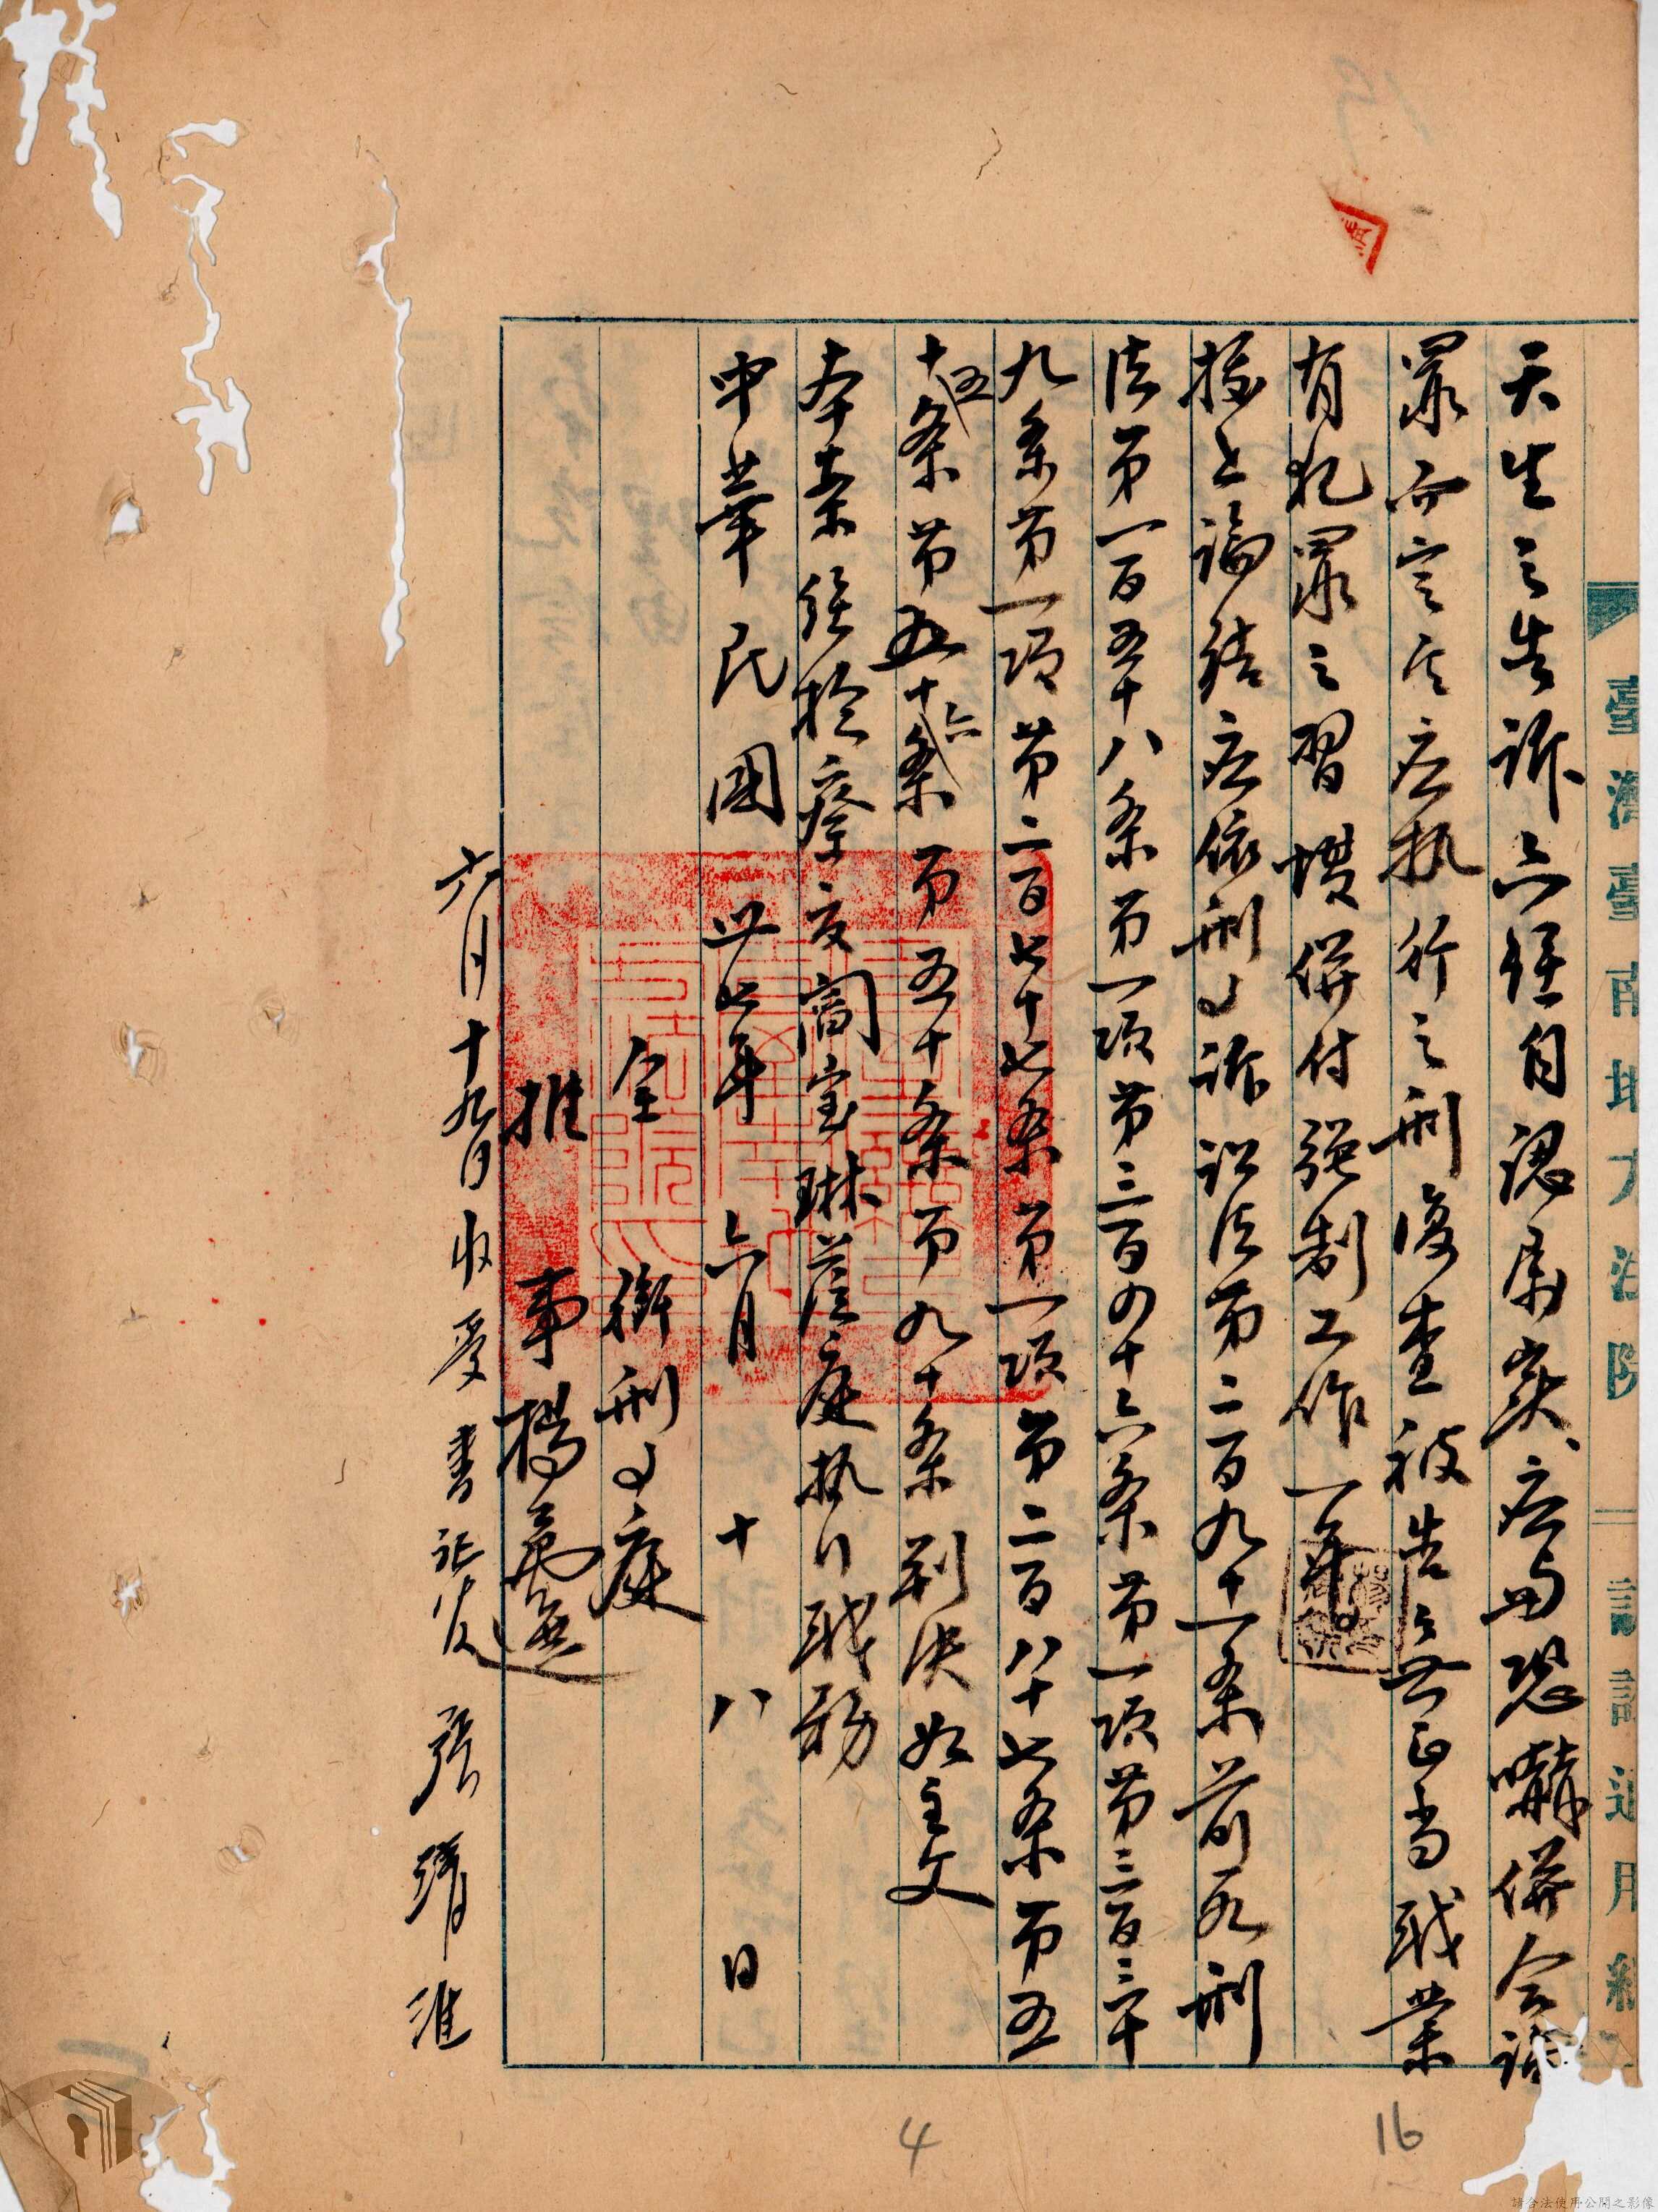 臺灣臺南地方法院
天生之告訴亦經自認屬實、应与恐嚇併合論
罪而定其应执行之刑復查被告之無正当職業
有犯罪之習慣併付強制工作一年。
據上論結应依刑事訴訟法第二百九十一条前段刑
法第一百五十八条第一項第三百四十六条第一項第三百三十
九条第一項第二百七十七条第一項第二百八十七条第五
十五条第五十六条第五十条第九十条判決如主文
本案經检察官閻宝琳蒞庭执行職務
中華民國卅七年六月十八日
全衔刑事庭
推事楊
六月十九日收受書記官張靖淮
4
16
請合法使用公開之影像